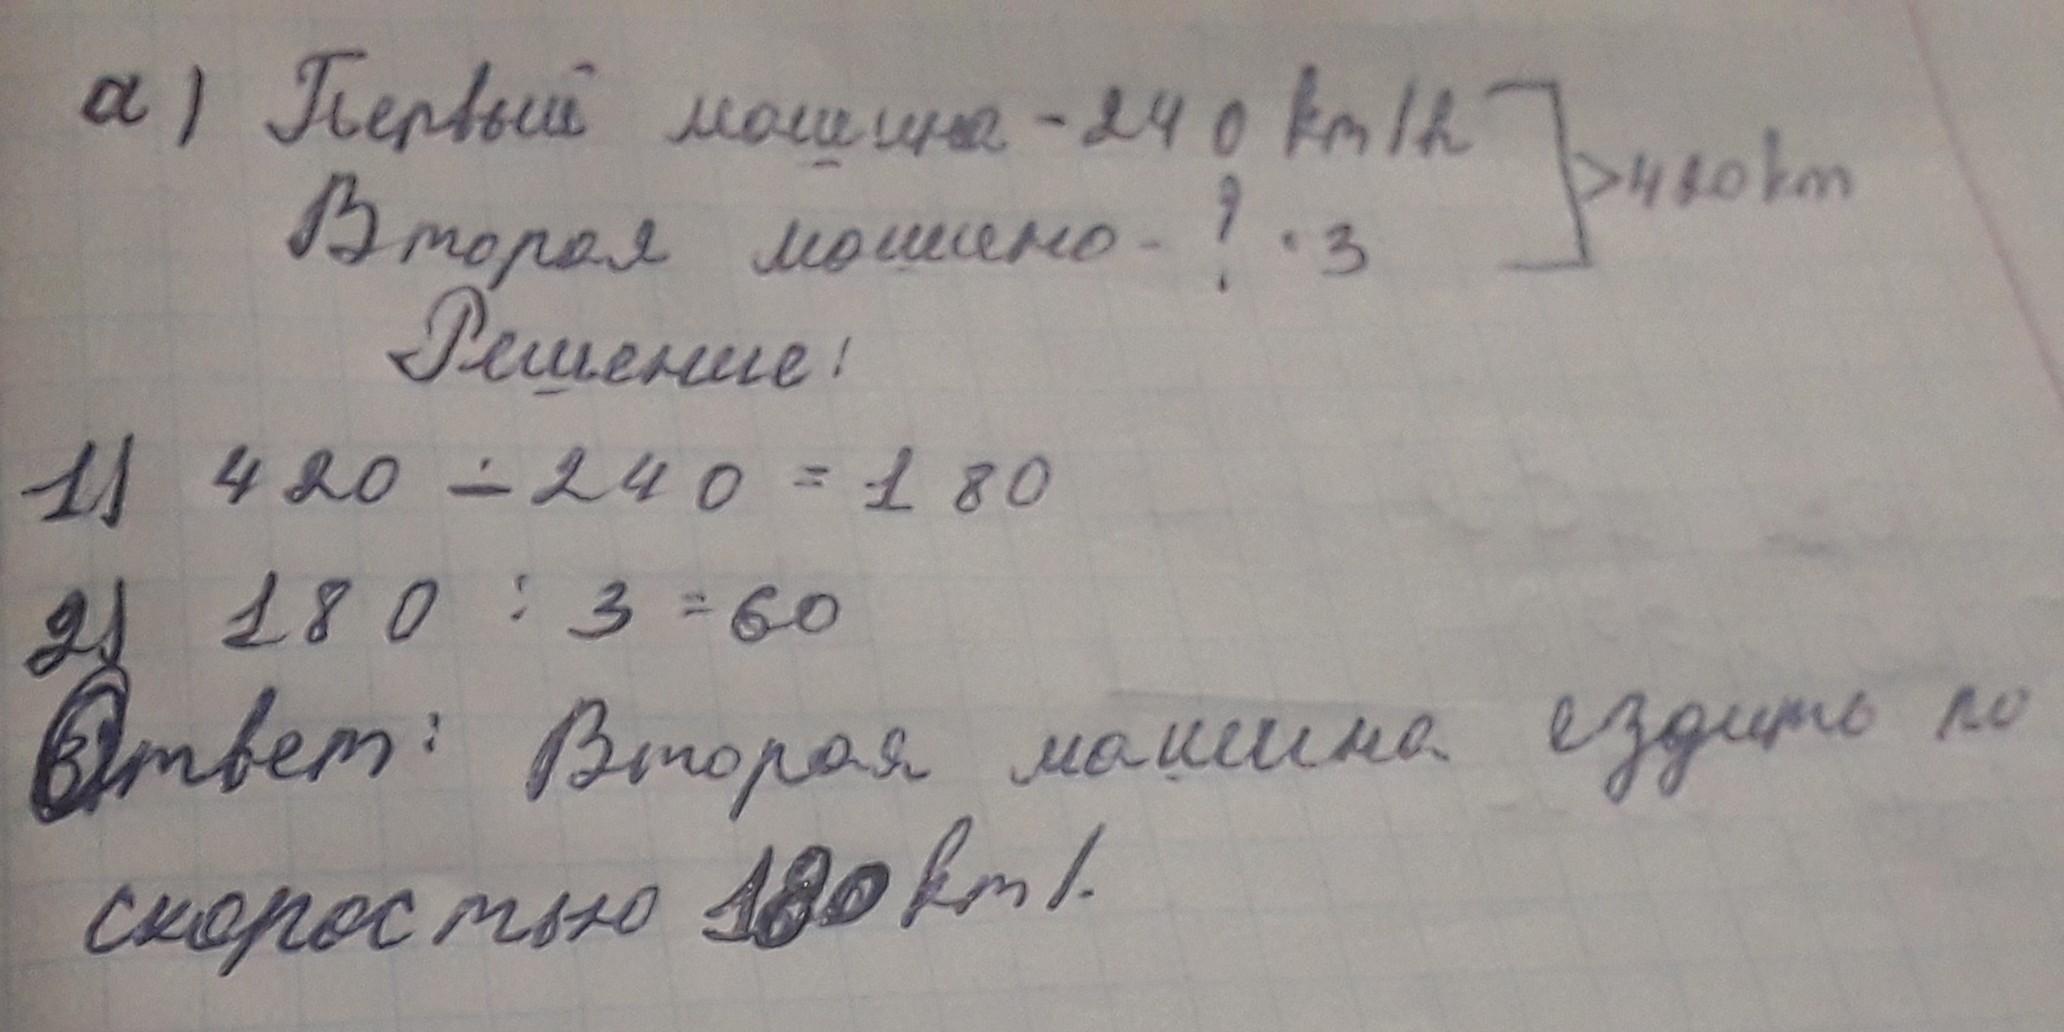 а) Первый машина - 240 km/h > 420 km
Вторая машино - ? · 3
Решение:
1) 420 - 240 = 180
2) 180 : 3 = 60
Ответ: Вторая машина ездить по
скоростью 180 km/.